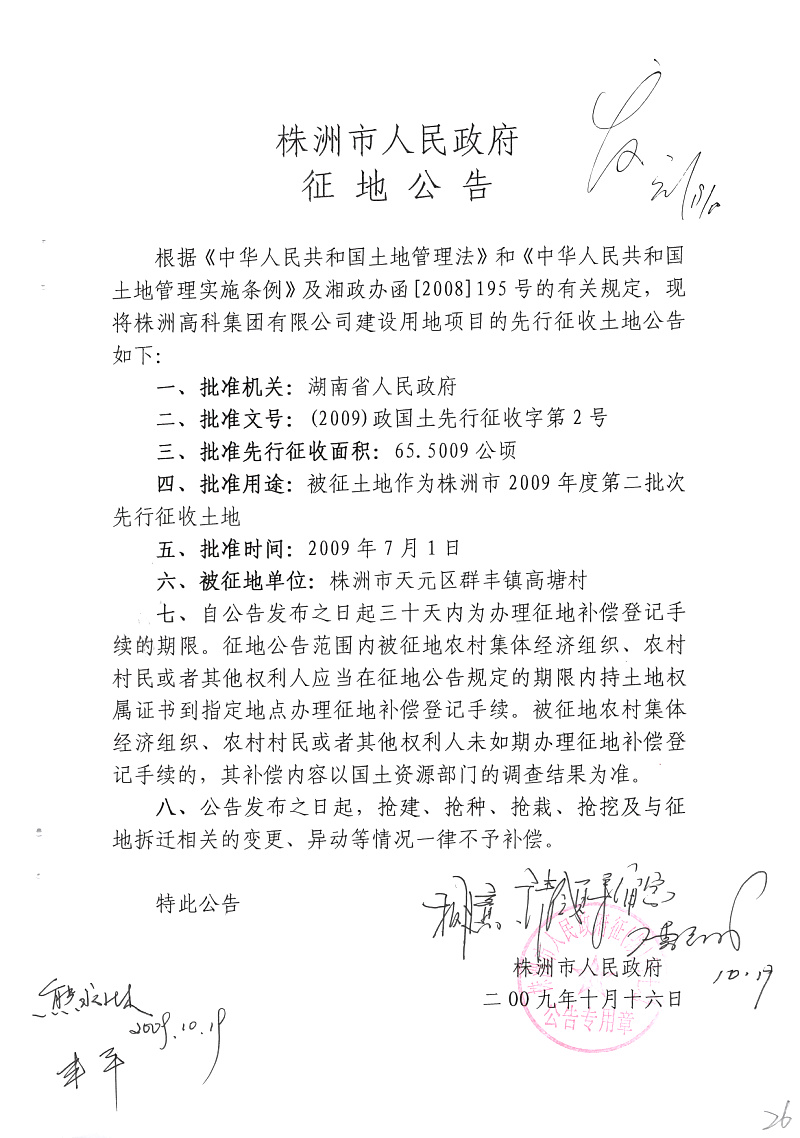 株洲市人民政府
征地公告
根据《中华人民共和国土地管理法》和《中华人民共和国
土地管理实施条例》及湘政办函[2008]195号的有关规定，现
将株洲高科集团有限公司建设用地项目的先行征收土地公告
如下：
一、批准机关：湖南省人民政府
二、批准文号：(2009)政国土先行征收字第2号
三、批准先行征收面积：65.5009公顷
四、批准用途：被征土地作为株洲市2009年度第二批次
先行征收土地
五、批准时间：2009年7月1日
六、被征地单位：株洲市天元区群丰镇高塘村
七、自公告发布之日起三十天内为办理征地补偿登记手
续的期限。征地公告范围内被征地农村集体经济组织、农村
村民或者其他权利人应当在征地公告规定的期限内持土地权
属证书到指定地点办理征地补偿登记手续。被征地农村集体
经济组织、农村村民或者其他权利人未如期办理征地补偿登
记手续的，其补偿内容以国土资源部门的调查结果为准。
八、公告发布之日起，抢建、抢种、抢栽、抢挖及与征
地拆迁相关的变更、异动等情况一律不予补偿。
特此公告
株洲市人民政府
二00九年十月十六日
公告专用章
10.19
2009.10.19
26